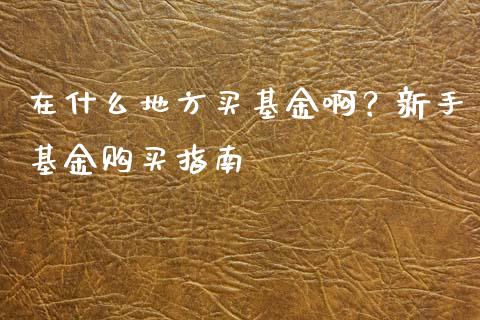 在什么地方买基金啊？新手
基金购买指南